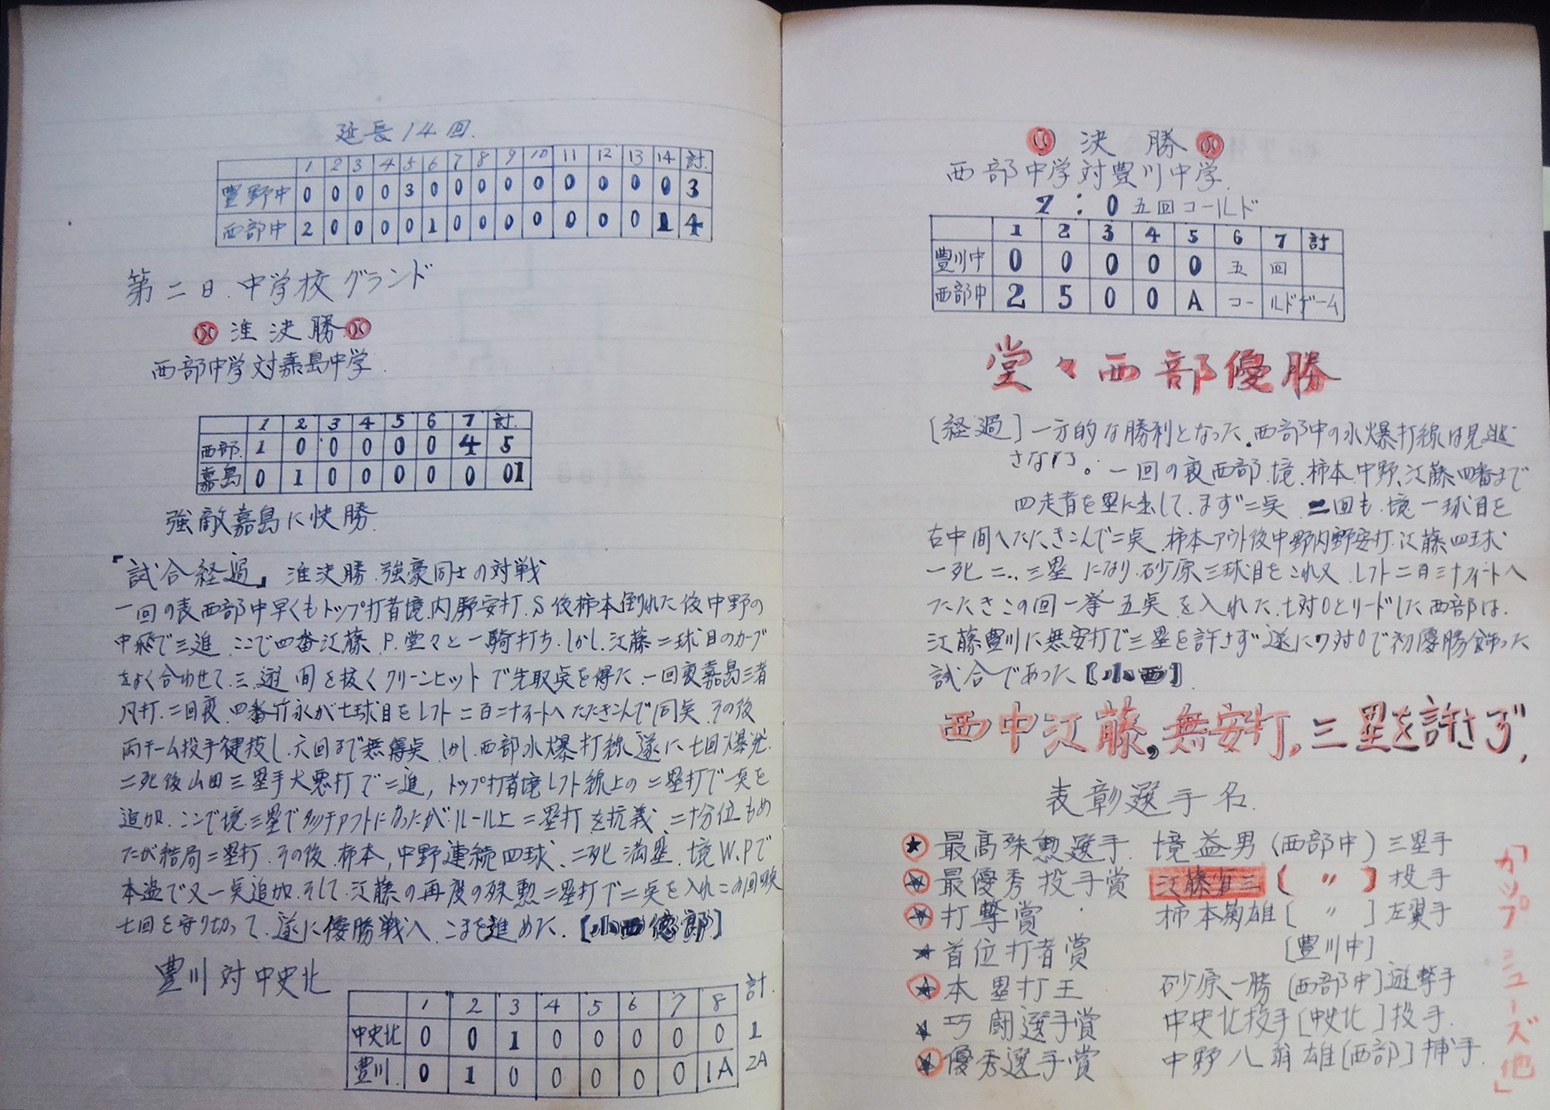 延長14回.
1 2 3 4 5 6 7 8 9 10 11 12 13 14 計.
豐野中 0 0 0 0 3 0 0 0 0 0 0 0 0 0 3
西部中 2 0 0 0 0 1 0 0 0 0 0 0 0 1 4
第二日.中学校グランド
准決勝
西部中学対嘉島中学.
1 2 3 4 5 6 7 計.
西部. 1 0 0 0 0 0 4 5
嘉島 0 1 0 0 0 0 0 01
強敵嘉島に快勝.
「試合経過」准決勝.強豪同士の対戦
一回の表西部中早くもトップ打者境.内野安打.S後柿本倒れた後中野の
中飛で三進.ここで四番江藤.P.堂々と一騎打ち.しかし.江藤二球目のカーブ
をよく合わせて.三.遊間を抜くクリーンヒットで先取点を得た.一回裏嘉島三者
凡打.二回裏.四番竹永が七球目をレフト二百二十フィートへたたきこんで同点.その後
両チーム投手健投し.六回まで無得点.しかし.西部水爆打線.遂に七回爆発.
二死後山田三塁手大悪打で二進,トップ打者境レフト線上の二塁打で一点を
追加.ここで境三塁でタッチアウトになったがルール上二塁打を抗義.二十分位もめ
たが結局二塁打.その後.柿本,中野連続四球.二死満塁.境W.Pで
本盗で又一点追加.そして.江藤の再度の殊勲二塁打で二点を入れこの回四点
七回を守り切って.遂に優勝戦へ.こまを進めた.[小西億郎]
豊川対中史北
1 2 3 4 5 6 7 8 計.
中史北 0 0 1 0 0 0 0 0 1
豊川. 0 1 0 0 0 0 0 1A 2A
決勝
西部中学対豊川中学.
7:0 五回コールド
1 2 3 4 5 6 7 計
豊川中 0 0 0 0 0 五 回
西部中 2 5 0 0 A コー ルド ゲーム
堂々西部優勝
[経過]一方的な勝利となった.西部中の水爆打線は見逃
さない。一回の裏西部.境.柿本.中野.江藤四番まで
四走者を塁に出して.まず二点.二回も.境一球目を
右中間へたたきこんで二点.柿本アウト後中野内野安打.江藤四球
一死二.三塁になり.砂原三球目をこれ又.レフト二百三十フィートへ
たたきこの回一挙五点を入れた.七対0とリードした西部は.
江藤豊川に無安打で三塁を許さず遂に7対0で初優勝飾った
試合であった[小西].
西中江藤,無安打,三塁を許さず,
表彰選手名.
★最高殊勲選手.境益男(西部中)三塁手
★最優秀投手賞 江藤省三(〃)投手
★打撃賞 柿本菊雄[〃]左翼手
★首位打者賞 [豊川中]
★本塁打王 砂原一勝[西部中]遊撃手
★巧闘選手賞 中史北投手[中史北]投手.
★優秀選手賞 中野八翁雄[西部]捕手.
「カップ.シューズ他」